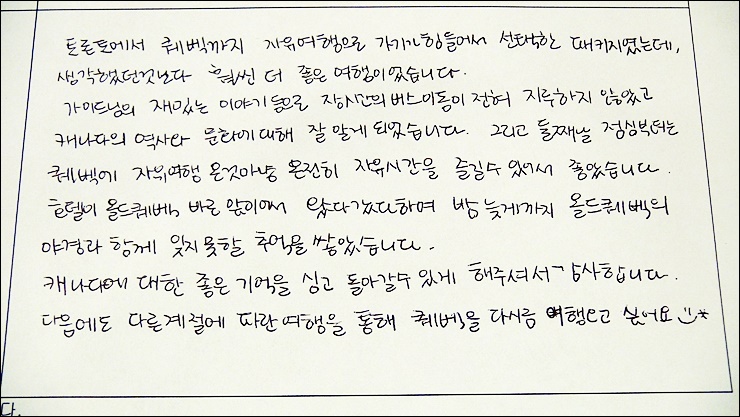 토론토에서 퀘벡까지 자유여행으로 가기가 힘들어서 선택한 패키지였는데,
생각했던것보다 훨씬 더 좋은 여행이었습니다.
가이드님의 재밌는 이야기 등으로 장시간의 버스이동이 전혀 지루하지 않았고
캐나다의 역사와 문화에 대해 잘 알게 되었습니다. 그리고 둘째날 점심부터는
퀘벡에 자유여행 온것마냥 온전히 자유시간을 즐길수 있어서 좋았습니다.
호텔이 올드퀘벡 바로 앞이어서 왔다갔다하며 밤 늦게까지 올드퀘벡의
야경과 함께 잊지 못할 추억을 쌓았습니다.
캐나다에 대한 좋은 기억을 싣고 돌아갈수 있게 해주셔서 감사합니다.
다음에도 다른계절에 파란여행을 통해 퀘벡을 다시금 여행하고 싶어요
다.